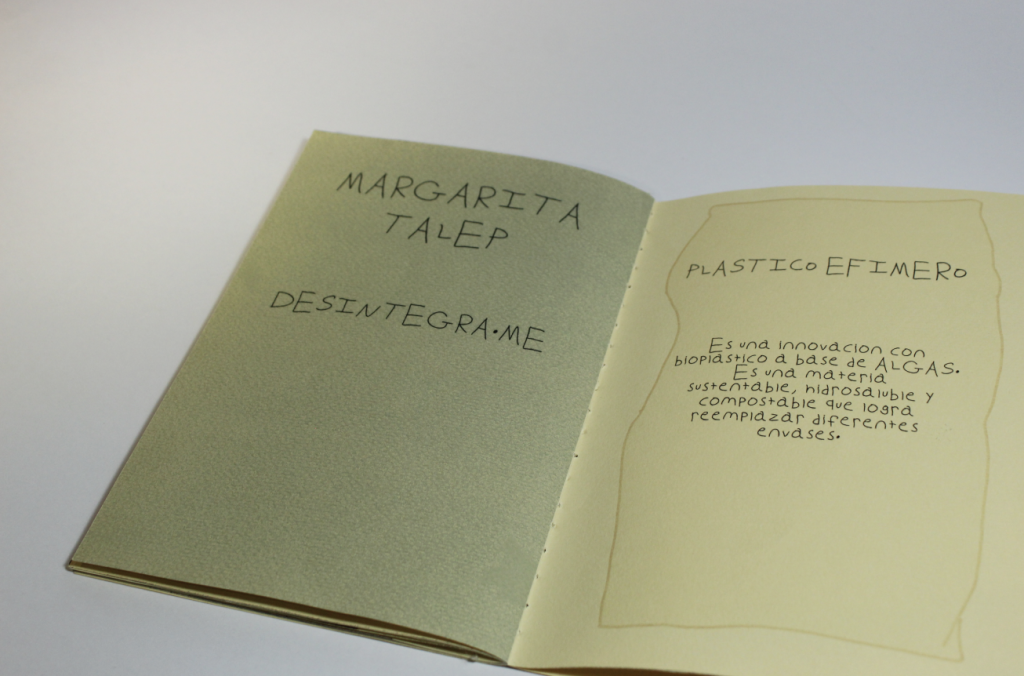 MARGARITA
TALEP
DESINTEGRA.ME
PLASTICO EFIMERO
Es una innovacion con
bioplastico a base de ALGAS.
Es una materia
sustentable, hidrosaluble y
compostable que logra
reemplazar diferentes
envases.